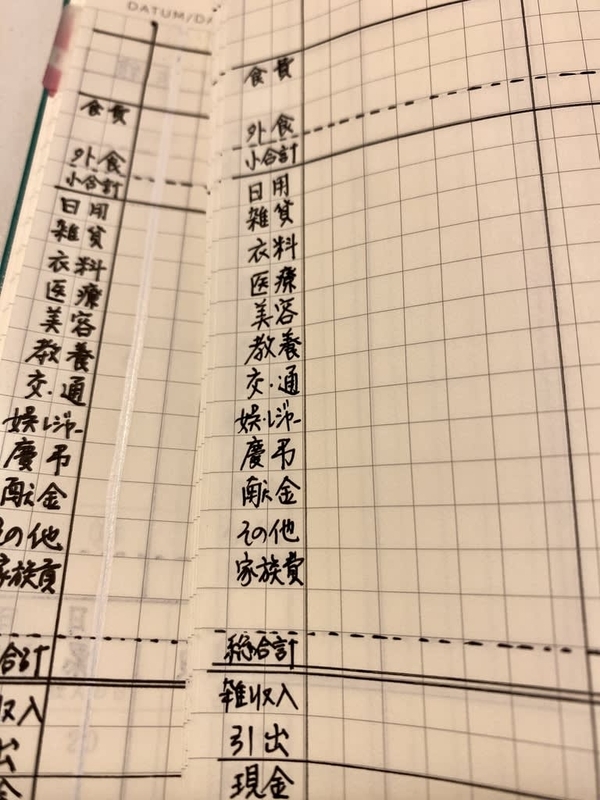 DATUM/DA
食費
外食
小合計
日用
雑貨
衣料
医療
美容
教養
交・通
娯・レジャー
慶弔
献金
その他
家族費
合計
収入
出
金
食費
外食
小合計
日用
雑貨
衣料
医療
美容
教養
交・通
娯・レジャー
慶弔
献金
その他
家族費
総合計
雑収入
引出
現金